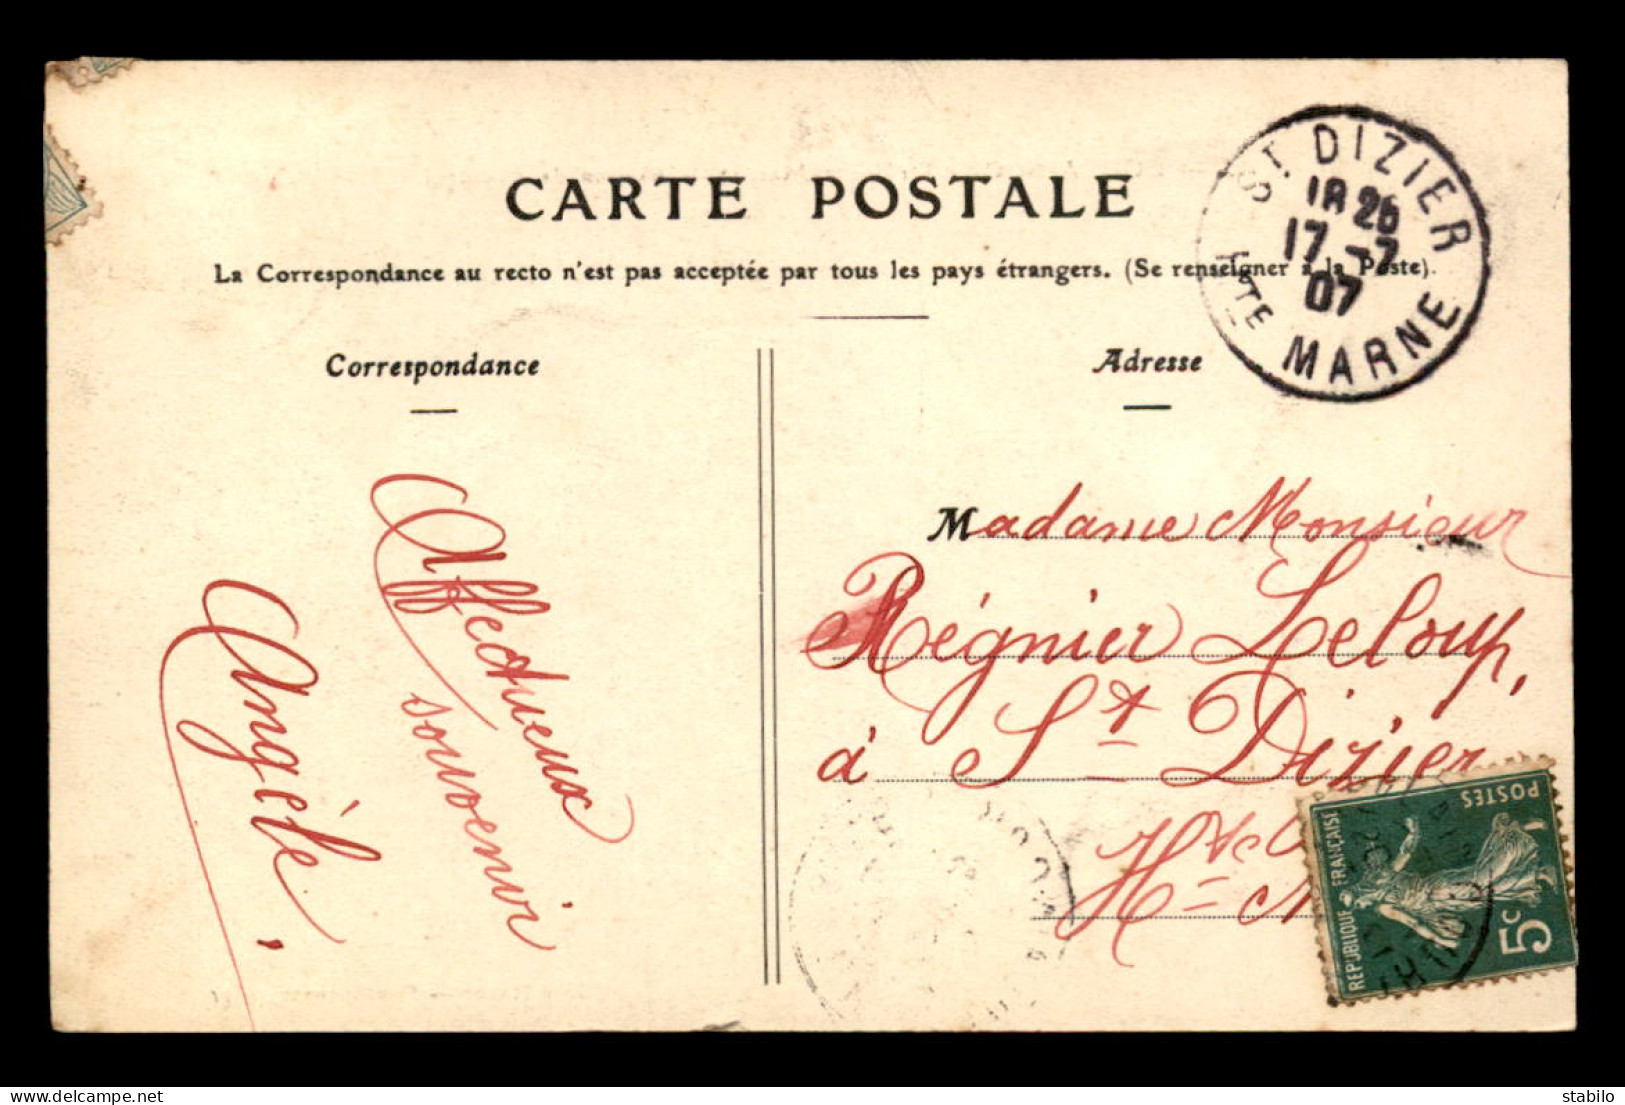 CARTE POSTALE
La Correspondance au recto n'est pas acceptée par tous les pays étrangers. (Se renseigner à la Poste).
ST DIZIER
18 25
17 - 7
07
HTE MARNE
Correspondance
Affectueux
souvenir
Angèle.
Adresse
Madame Monsieur
Régnier Leloup,
à St Dizier
Hte
POSTES
REPUBLIQUE FRANÇAISE
5c
Numérisation non contractuelle
delcampe.net
fsabilo